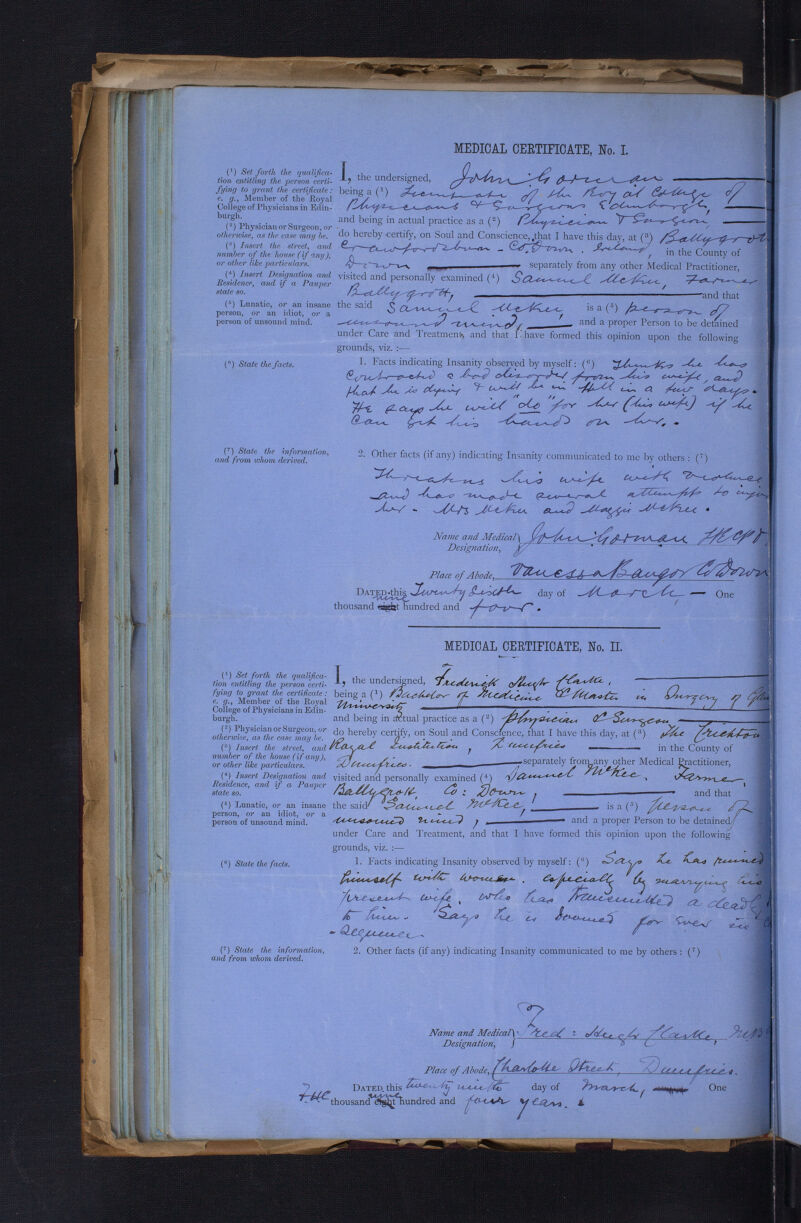 MEDICAL CERTIFICATE, No. I.
(¹) Set forth the qualifica-
tion entitling the person certi-
fying to grant the certificate:
e. g., Member of the Royal
College of Physicians in Edin-
burgh.
(²) Physician or Surgeon, or
otherwise, as the case may be.
(³) Insert the street, and
number of the house (if any),
or other like particulars.
(⁴) Insert Designation and
Residence, and if a Pauper
state so.
(⁵) Lunatic, or an insane
person, or an idiot, or a
person of unsound mind.
I, the undersigned, John Gorman
being a (¹) Licentiate of the Royal College of
Physicians & Surgeons Edinburgh,
and being in actual practice as a (²) Physician & Surgeon
do hereby certify, on Soul and Conscience, that I have this day, at (³) Ballygrott
Crawfordsburn - Co. Down. Ireland, in the County of
Down separately from any other Medical Practitioner,
visited and personally examined (⁴) Samuel McKee, Farmer
Ballygrott, and that
the said Samuel McKee, is a (⁵) person of
unsound mind, and a proper Person to be detained
under Care and Treatment, and that I have formed this opinion upon the following
grounds, viz. :—
(⁶) State the facts.
1. Facts indicating Insanity observed by myself: (⁶) Thinks he has
contracted a bad disorder from his wife, and
that he is dying & will be in Hell in a few days.
He says he will "do" for her (his wife) if he
can get his hands on her.
(⁷) State the information,
and from whom derived.
2. Other facts (if any) indicating Insanity communicated to me by others : (⁷)
Threatens his wife with violence
and has made several attempts to injure
her - Mrs McKee and Maggie McKee.
Name and Medical Designation, John Gorman
Place of Abode, Vanessa Bangor Co Down
DATED this Twenty Sixth day of March, One
thousand eight nine hundred and four.
MEDICAL CERTIFICATE, No. II.
(¹) Set forth the qualifica-
tion entitling the person certi-
fying to grant the certificate:
e. g., Member of the Royal
College of Physicians in Edin-
burgh.
(²) Physician or Surgeon, or
otherwise, as the case may be.
(³) Insert the street, and
number of the house (if any),
or other like particulars.
(⁴) Insert Designation and
Residence, and if a Pauper
state so.
(⁵) Lunatic, or an insane
person, or an idiot, or a
person of unsound mind.
I, the undersigned, Frederick Hugh Clarke,
being a (¹) Bachelor of Medicine & Master in Surgery of
University
and being in actual practice as a (²) Physician & Surgeon
do hereby certify, on Soul and Conscience, that I have this day, at (³) The Crichton
Royal Institution, Dumfries in the County of
Dumfries. separately from any other Medical Practitioner,
visited and personally examined (⁴) Samuel McKee. Farmer,
Ballygrott, Co: Down, and that
the said Samuel McKee, is a (⁵) person of
unsound mind, and a proper Person to be detained
under Care and Treatment, and that I have formed this opinion upon the following
grounds, viz. :—
(⁶) State the facts.
1. Facts indicating Insanity observed by myself: (⁶) Says he has ruined
himself with women. especially by marrying his
present wife, who has transmitted a deadly
to him. Says he is doomed for ever in
-sequence.
(⁷) State the information,
and from whom derived.
2. Other facts (if any) indicating Insanity communicated to me by others : (⁷)
Name and Medical Designation, Fred: Hugh Clarke, M.B
Place of Abode, Charlotte Street, Dumfries.
DATED this twenty ninth day of March, One
F.H.C thousand eight nine hundred and four years.